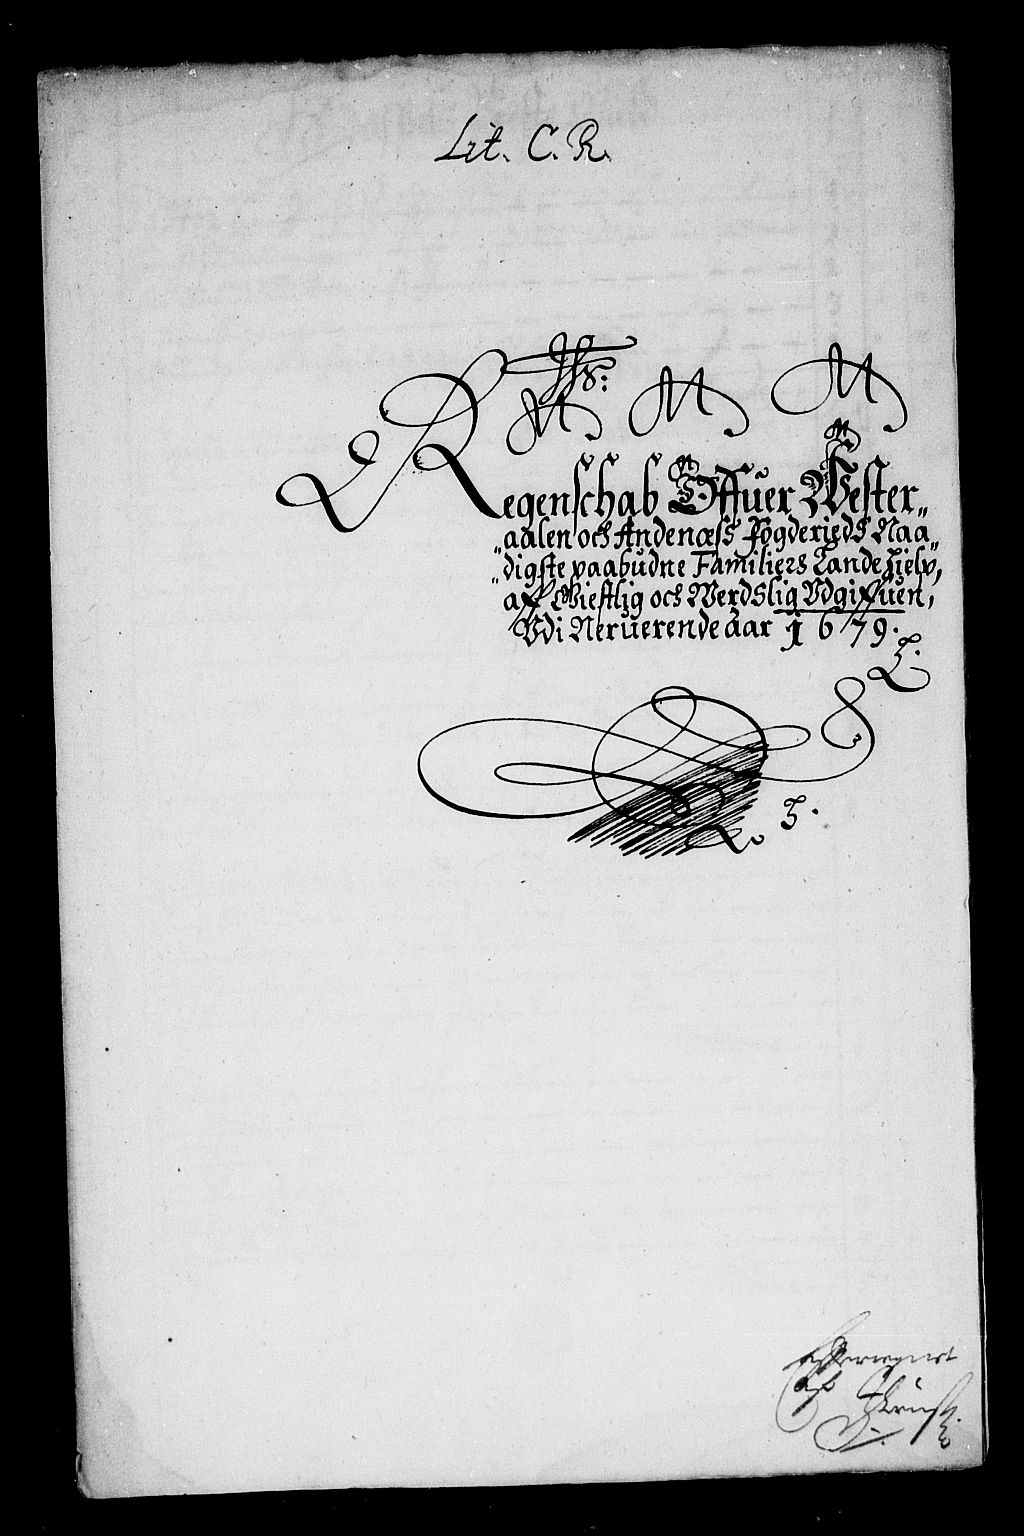 Lit. C. R.
Regenschab Offuer Wester„
„aalen och Andenæss Fogderieds Naa„
„digste paabudne Familiers Lande hielp,
aff Giestlig och Werdslig Udgiffuen,
Udi Neruerende aar 1679.